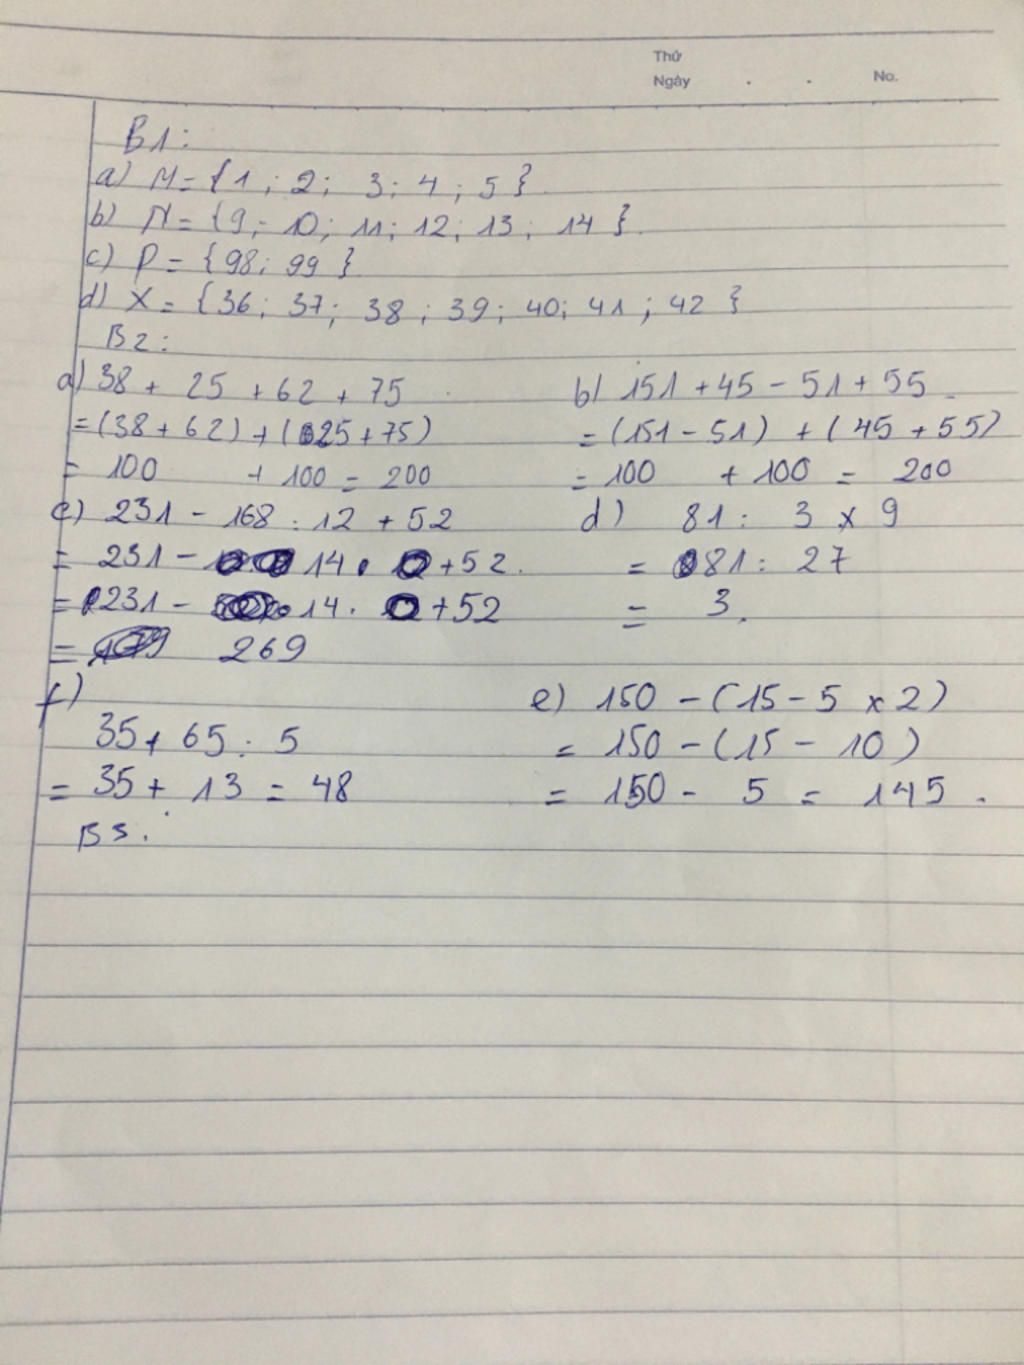 Thứ
Ngày . . No.
B1:
a) M = {1 ; 2 ; 3 ; 4 ; 5 }.
b) N = {9 ; 10 ; 11 ; 12 ; 13 ; 14 }.
c) P = {98 ; 99 }
d) X = {36 ; 37 ; 38 ; 39 ; 40 ; 41 ; 42 }
B2:
a) 38 + 25 + 62 + 75
= (38 + 62) + (25 + 75)
= 100 + 100 = 200
b) 151 + 45 - 51 + 55
= (151 - 51) + (45 + 55)
= 100 + 100 = 200
c) 231 - 168 : 12 + 52
= 231 - 14 + 52.
= 231 - 14 . + 52
= 269
d) 81 : 3 x 9
= 81 : 27
= 3.
f)
35 + 65 : 5
= 35 + 13 = 48
e) 150 - (15 - 5 x 2)
= 150 - (15 - 10)
= 150 - 5 = 145.
B3.